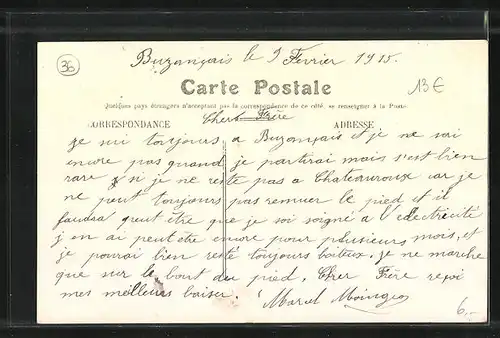 36
Buzançais le 9 Février 1915.
Carte Postale
13€
Quelques pays étrangers n'acceptant pas la correspondance de ce côté, se renseigner à la Poste
CORRESPONDANCE
ADRESSE
Chert Frère
je sui toujours a Buzonçais et je ne sai
encore pas quand je partirai mais s'est bien
rare si je ne reste pas a Chateauroux car je
ne peut toujours pas remuer le pied et il
faudra qeut être que je soi soigné a l'électricité
j en ai peut être encore pour plusieurs mois, et
je pourai bien resté toujours boiteux. je ne marche
que sur le bout du pied, Cher Frère reçoi
mes meilleurs baiser.
Marcel
6.-